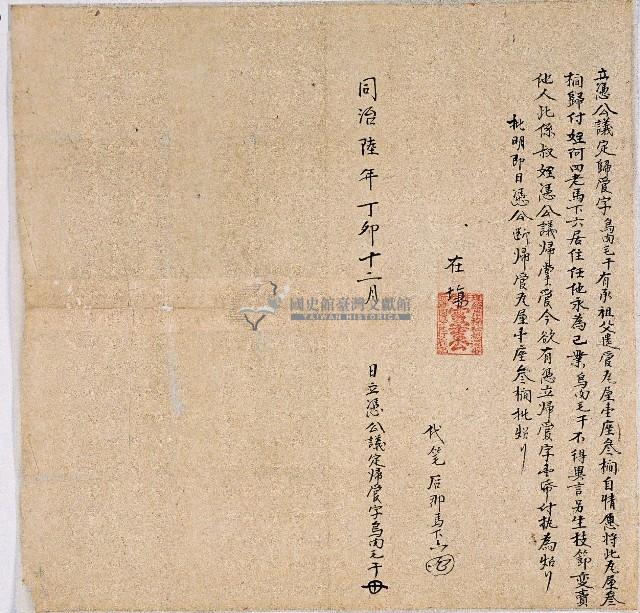 立憑公議定歸管字烏肉毛干有承祖父遺管瓦屋壹座叁橺自情愿將此瓦屋叁
橺歸付姪阿四老馬下六居住任他永為己業烏肉毛干不得異言另生枝節變賣
他人此係叔姪憑公議歸掌管今欲有憑立歸管字壹紙付执為炤
批明即日憑公断歸管瓦屋壹座叁橺批炤
在塲
代笔 后那馬下六
同治陸年丁卯十二月
日立憑公議定歸管字烏肉毛干
國史館臺灣文獻館
TAIWAN HISTORICA